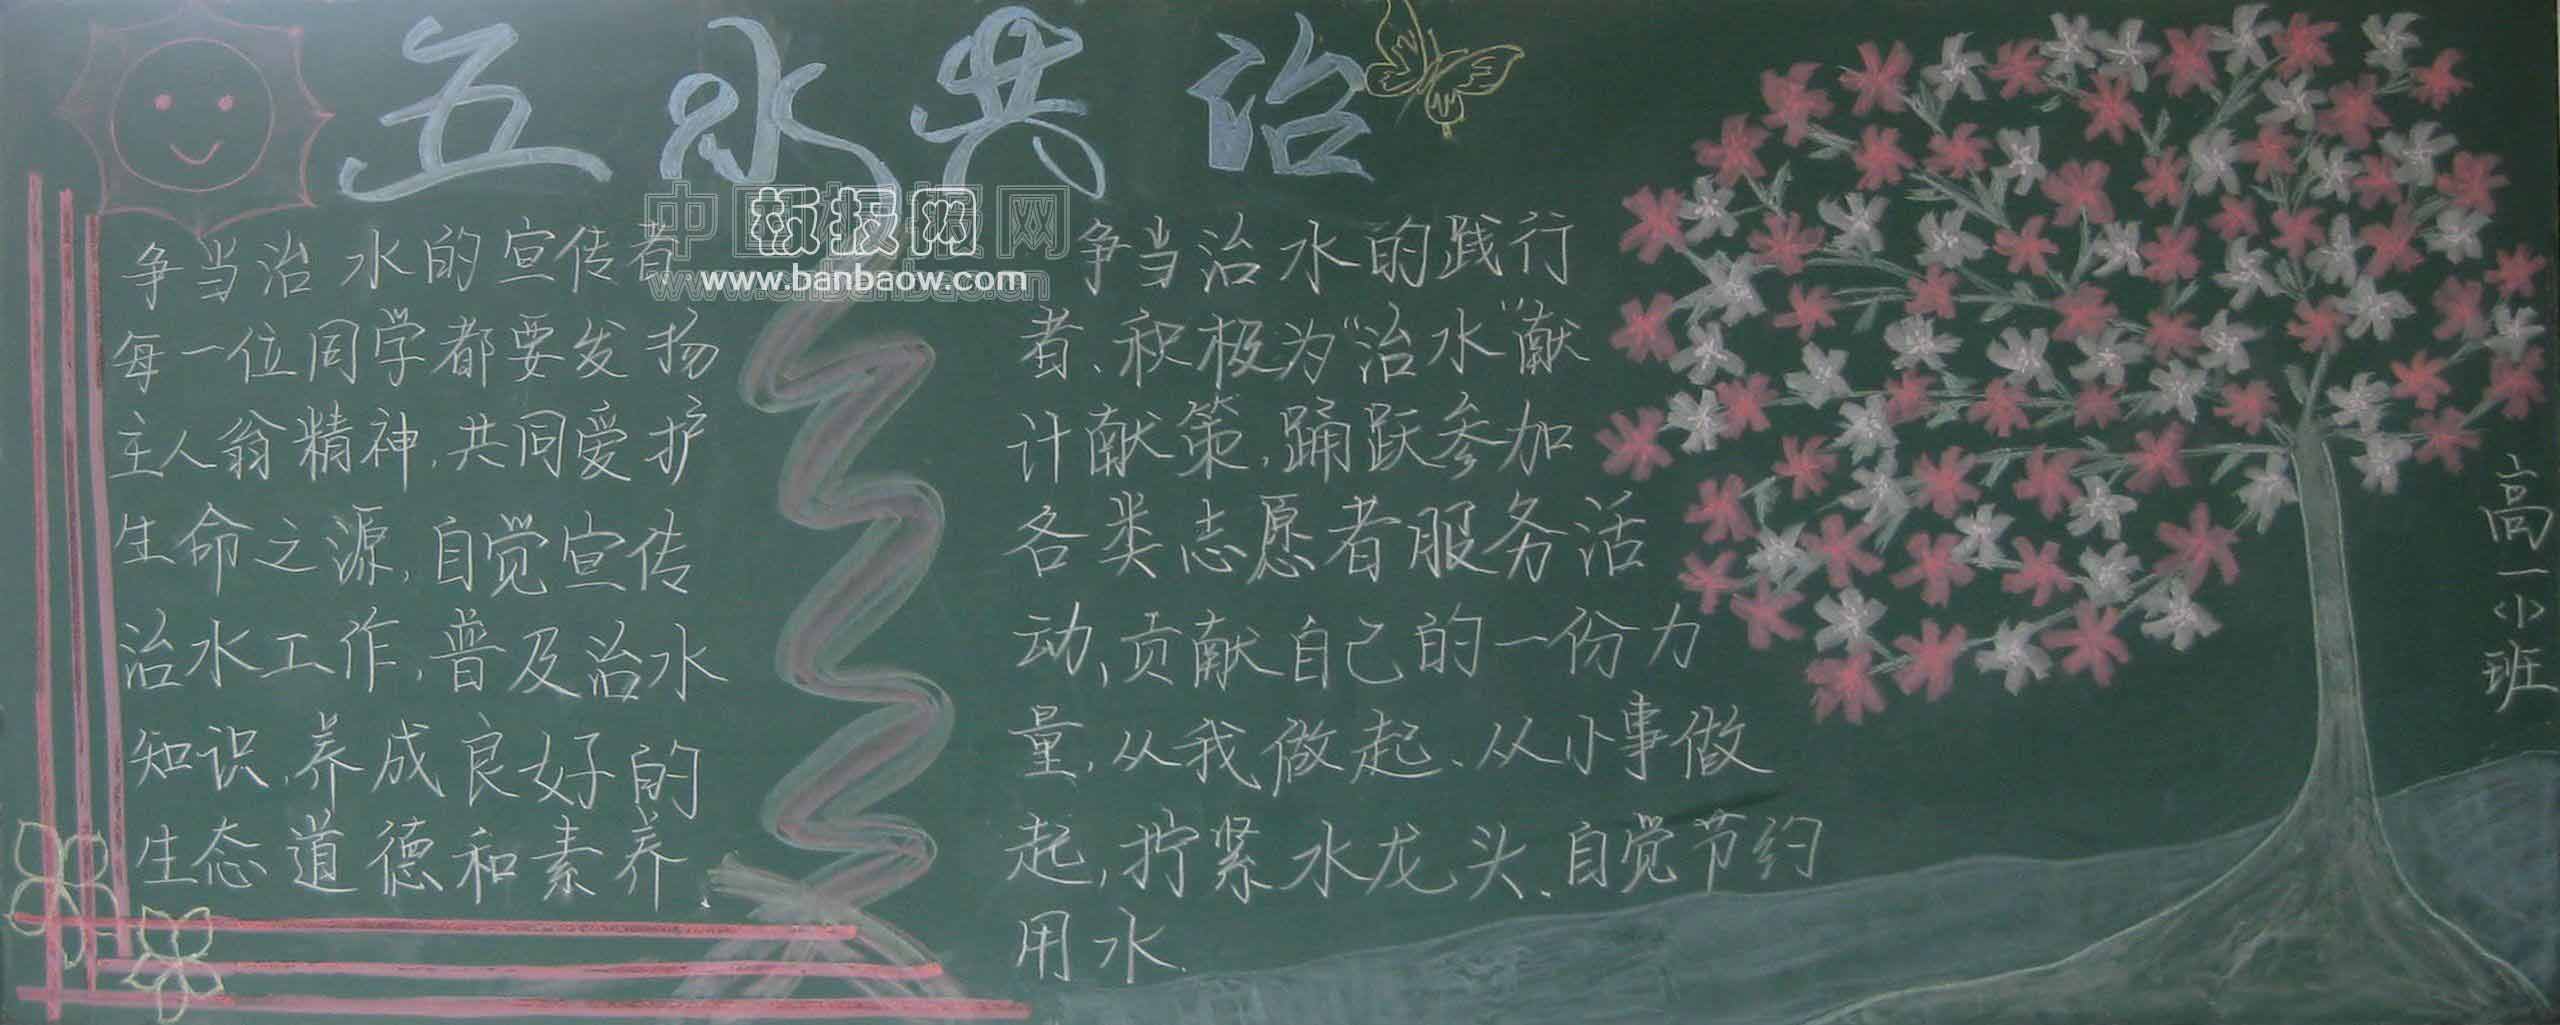 五水共治
中国板报网
板报网
www.banbaow.com
争当治水的宣传者
每一位同学都要发扬
主人翁精神,共同爱护
生命之源,自觉宣传
治水工作,普及治水
知识,养成良好的
生态道德和素养.
争当治水的践行
者、积极为“治水”献
计献策,踊跃参加
各类志愿者服务活
动,贡献自己的一份力
量,从我做起、从小事做
起,拧紧水龙头、自觉节约
用水.
高一(1)班